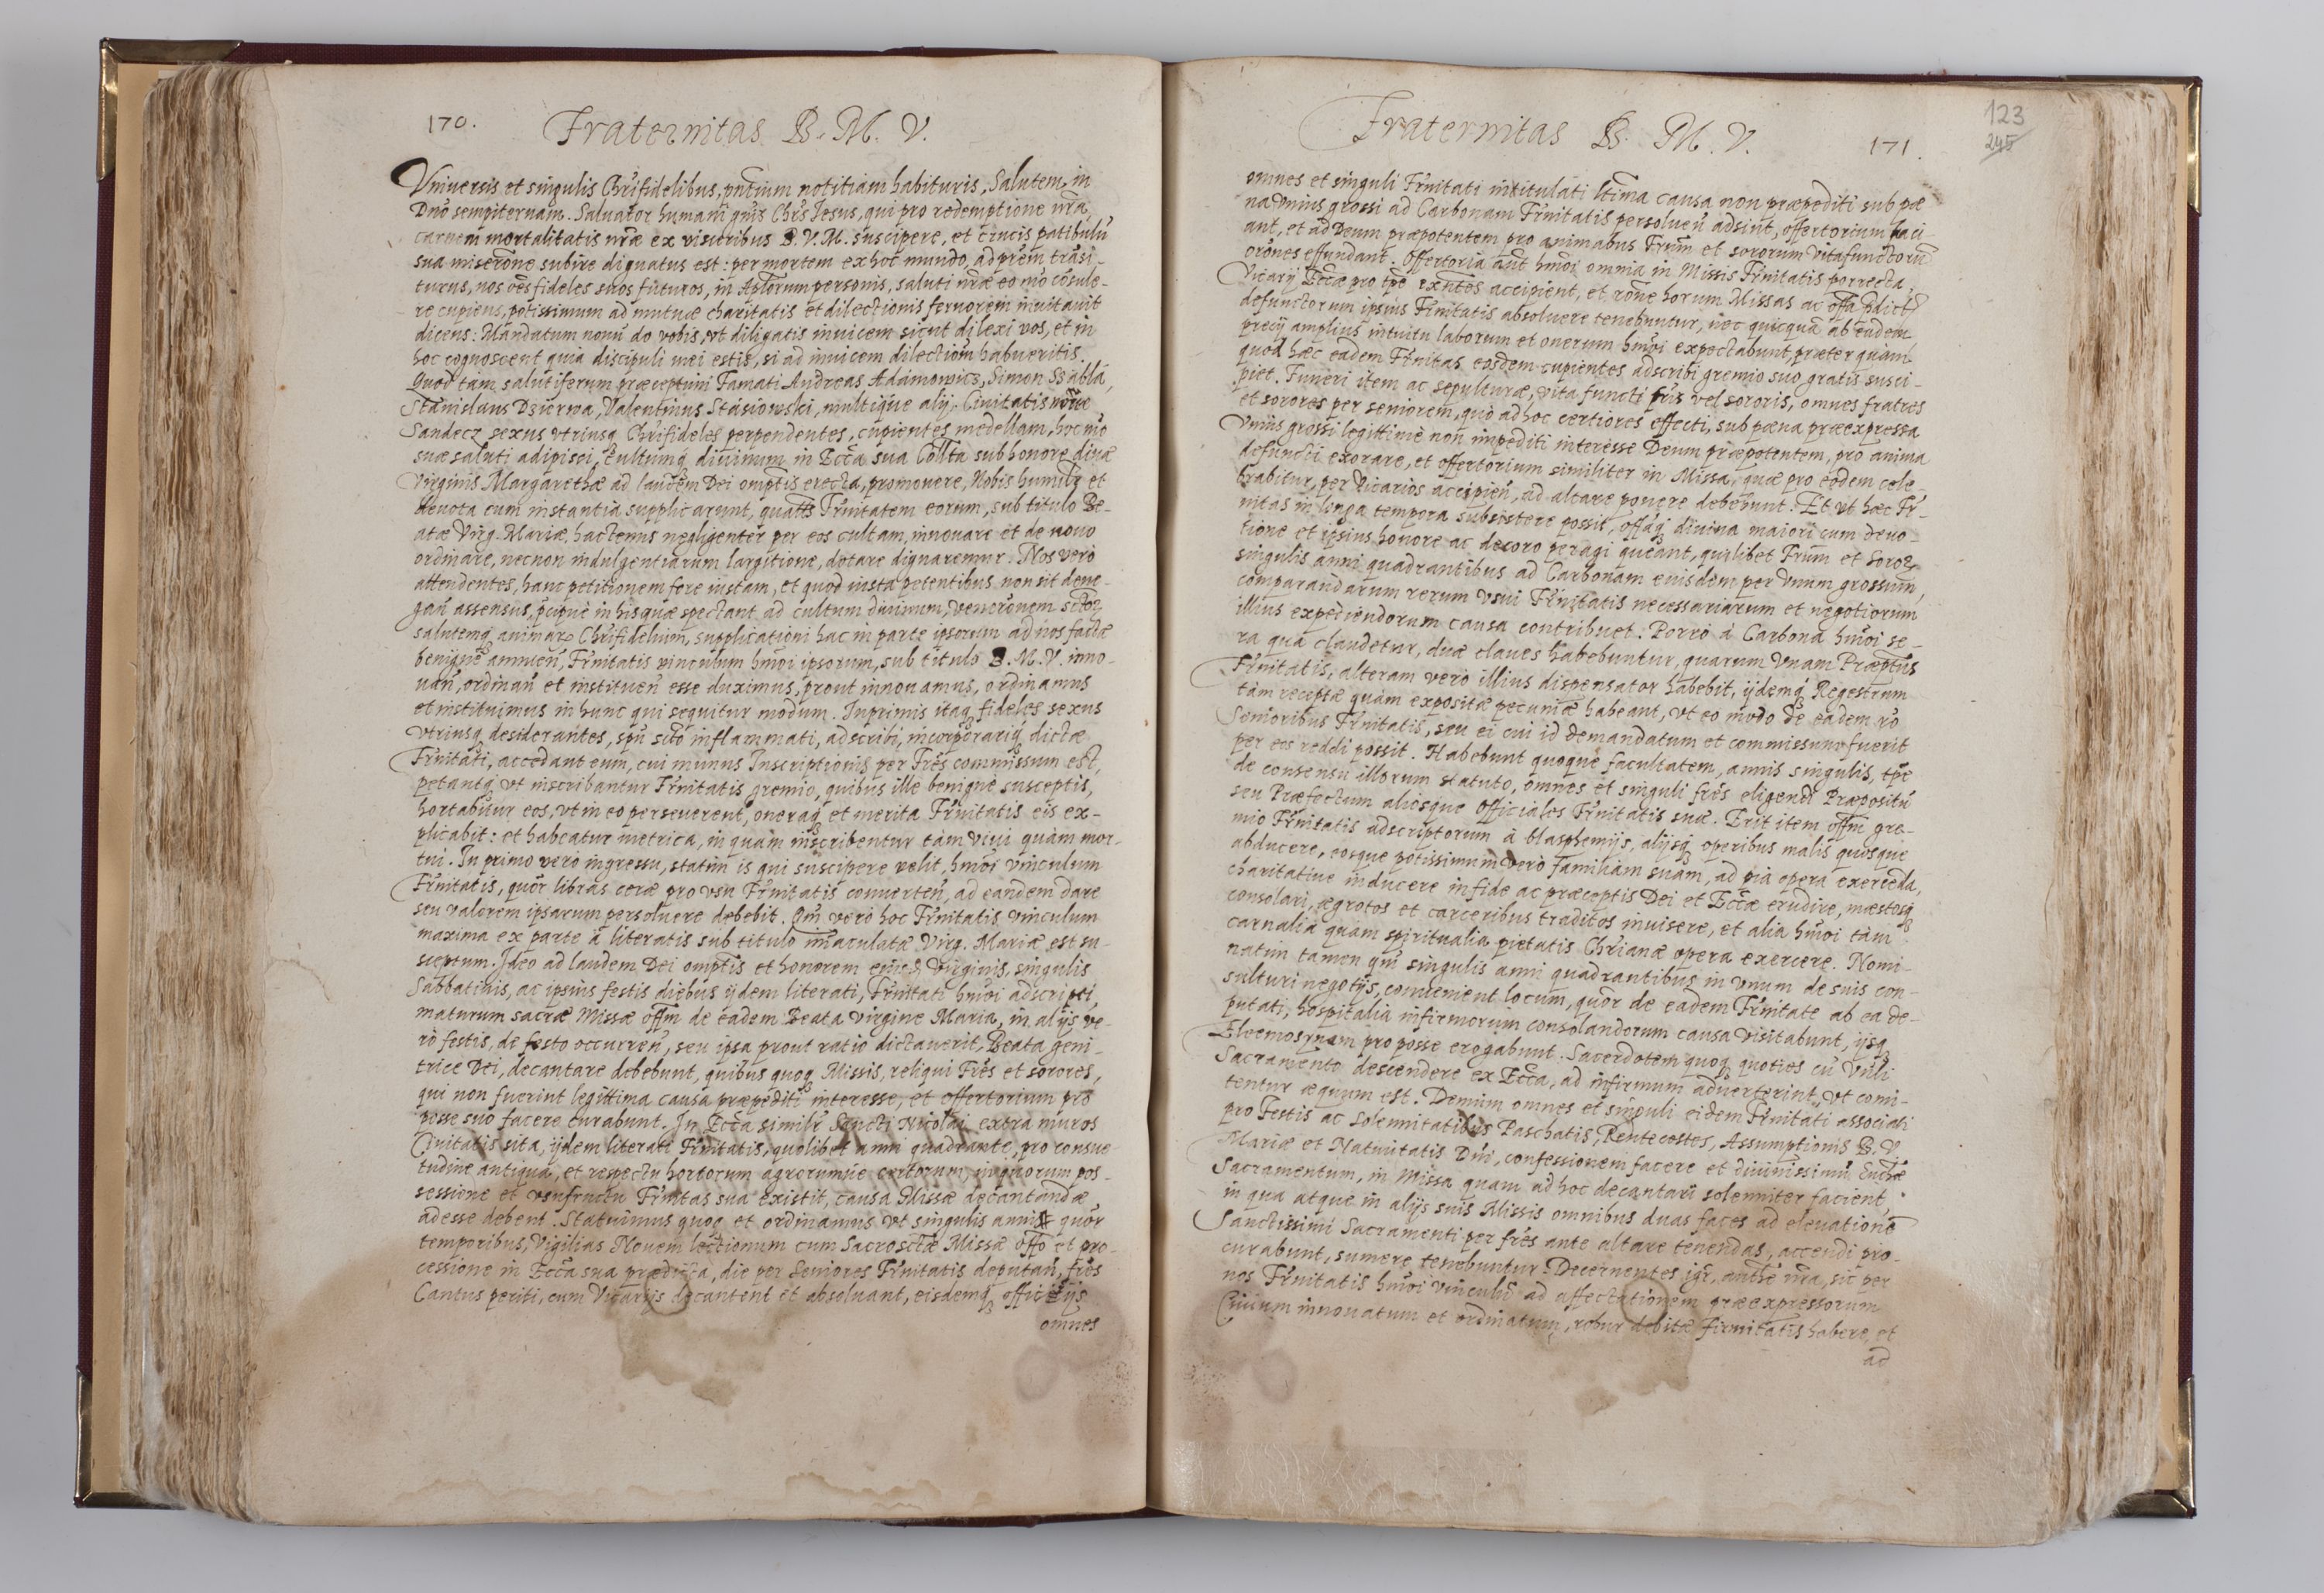 170.
Fraternitas B. M. V.
Vniuersis et singulis Chrifidelibus, pntium notitiam habituris, Salutem in
Dno sempiternam. Saluator humani gnis Chrs Iesus, qui pro redemptione nra
carnem mortalitatis nræ ex visceribus B. V. M. suscipere, et crucis patibulũ
sua miserone subire dignatus est: per mortem ex hoc mundo, ad prem trãsi-
turus, nos oẽs fideles suos futuros, in Aplorum personis, saluti nræ eo mõ cõsule-
re cupiens, potissimum ad mutuæ charitatis et dilectionis feruorem inuitauit
dicens: Mandatum nouũ do vobis, vt diligatis inuicem sicut dilexi vos, et in
hoc cognoscent quia discipuli mei estis, si ad inuicem dilectiom habueritis.
Quod tam salutiferum præceptum Famati Andreas Adamowicz, Simon Ssabla,
Stanislaus Dzierwa, Valentinus Stasiowski, multique alij, Ciuitatis noue
Sandecz sexus vtriusq Chrifideles perpendentes, cupientes medellam, hoc mõ
suæ saluti adipisci, Cultumq diuinum in Ecca sua Collta sub honore diuæ
Virginis Margarethæ ad laudem Dei omptis erecta, promouere, Nobis humilr et
deuota cum instantia supplicarunt, quatts Frnitatem eorum, sub titulo Be-
atæ Virg. Mariæ, hactenus negligenter per eos cultam, innouare et de nouo
ordinare, necnon indulgentiarum largitione, dotare dignaremur. Nos verò
attendentes, hanc petitionem fore iustam, et quod iusta petentibus non sit dene-
gan assensus, pcipuè in his quæ spectant ad cultum diuinum, veneronem Sctor
salutemq animar Chrifidelium, supplicationi hac in parte ipsorum ad nos factæ
benignè annuen, Frnitatis vinculum hmoi ipsorum, sub titulo B. M. V. inno-
uan, ordinan et instituen esse duximus, prout innouamus, ordinamus
et instituimus in hunc qui sequitur modum. Inprimis itaq fideles sexus
vtriusq desiderantes, spu scto inflammati, adscribi, incorporariq dictæ
Frnitati, accedant eum, cui munus Inscriptionis per Fres commissum est,
petantq vt inscribantur Frnitatis gremio, quibus ille benignè susceptis,
hortabitur eos, vt in eo perseuerent, oneraq et merita Frnitatis eis ex-
plicabit: et habeatur metrica, in quam inscribentur tàm viui quàm mor-
tui. In primo verò ingressu, statim is qui suscipere velit, hmoi vinculum
Frnitatis, quor libras ceræ pro vsu Frnitatis conuerten, ad eandem dare
seu valorem ipsarum persoluere debebit. Qm verò hoc Frnitatis vinculum
maxima ex parte à literatis sub titulo imaculatæ Virg. Mariæ est su-
sceptum. Ideo ad laudem Dei omptis et honorem eiusd Virginis, singulis
Sabbatinis, ac ipsius festis diebus ijdem literati, Frnitati hmoi adscripti,
maturum sacræ Missæ offm de eadem Beata Virgine Maria, in alijs ve-
rò festis, de festo occurren, seu ipsa prout ratio dictauerit, Beata geni-
trice Dei, decantare debebunt, quibus quoq Missis, reliqui Fres et sorores,
qui non fuerint legittima causa præpediti interesse, et offertorium pro
posse suo facere curabunt. In Ecca similr Sancti Nicolai extra muros
Ciuitatis sita, ijdem literati Frnitatis, quolibet anni quadrante, pro consue
tudine antiqua, et respectu hortorum agrorumue certorum, in quorum pos-
sessione et vsufructu Frnitas sua existit, causa Missæ decantandæ
adesse debent. Statuimus quoq et ordinamus vt singulis annis quor
temporibus, Vigilias Nouem lectionum cum Sacrosctæ Missæ offo et pro-
cessione in Ecca sua prædicta, die per Seniores Frnitatis deputan, fres
Cantus periti, cum Vicarijs decantent et absoluant, eisdemq officijs
omnes
Fraternitas B. M. V.
171.
123
245
omnes et singuli Frnitati intitulati ltima causa non præpediti sub pæ
na vnius grossi ad Carbonam Frnitatis persoluen adsint, offertorium faci-
ant, et ad Deum præpotentem pro animabus Frum et sororum vita functorũ
orones effundant. Offertoria aut hmoi omnia in Missis Frnitatis porrecta,
Vicarij Eccæ pro tpe exntes accipient, et rone horum Missas ac offa pdict
defunctorum ipsius Frnitatis absoluere tenebuntur, nec quicquã ab eadem
precij amplius intuitu laborum et onerum hmoi expectabunt, præter quam
quod hæc eadem Frnitas eosdem cupientes adscribi gremio suo gratis susci-
piet. Funeri item ac sepulturæ, vita functi fris vel sororis, omnes fratres
et sorores per seniorem, quò ad hoc certiores effecti, sub pæna præexpressa
vnius grossi legittimè non impediti interesse Deum præpotentem, pro anima
defuncti exorare, et offertorium similiter in Missa, quæ pro eodem cele-
brabitur, per Vicarios accipien, ad altare ponere debebunt. Et vt hæc Fr-
nitas in longa tempora subsistere possit, offaq diuina maiori cum deuo-
tione et ipsius honore ac decoro peragi queant, quilibet Frum et Soror
singulis anni quadrantibus ad Carbonam eiusdem per vnum grossum,
comparandarum rerum vsui Frnitatis necessariarum et negotiorum
illius expediendorum causa contribuet. Porrò à Carbona hmoi se-
ra qua claudetur, duæ claues habebuntur, quarum vnam Præptus
Frnitatis, alteram verò illius dispensator habebit, ijdemq Regestrum
tàm receptæ quàm expositæ pecuniæ habeant, vt eo modo de eadem ro
Senioribus Frnitatis, seu ei cui id demandatum et commissum fuerit
per eos reddi possit. Habebunt quoque facultatem, annis singulis, tpe
de consensu illorum statuto, omnes et singuli fres eligendi Præpositũ
seu Præfectum aliosque Officiales Frnitatis suæ. Erit item offm gre-
mio Frnitatis adscriptorum à blasphemijs, alijsq operibus malis quosque
abducere, eosque potissimum verò familiam suam, ad pia opera exercẽda,
charitatiue inducere in fide ac præceptis Dei et Eccæ erudire, mæstosq
consolari, ægrotos et carceribus traditos inuisere, et alia hmoi tàm
carnalia quam spiritualia pietatis Chrianæ opera exercere. Nomi-
natim tamen qm singulis anni quadrantibus in vnum de suis con-
sulturi negotijs, conuenient locum, quor de eadem Frnitate ab ea de-
putati, hospitalia infirmorum consolandorum causa visitabunt, ijsq
Eleemosynam pro posse erogabunt. Sacerdotem quoq quoties cũ Viuli
Sacramento descendere ex Ecca, ad infirmum aduerterint, vt comi-
tentur æquum est. Demùm omnes et singuli eidem Frnitati associati
pro Festis ac solemnitatibus Paschatis, Pentecostes, Assumptionis B. V.
Mariæ et Natiuitatis Dni, confessionem facere et diuinissimũ Euchæ
Sacramentum, in Missa quam ad hoc decantari solenniter facient,
in qua atque in alijs suis Missis omnibus duas faces ad eleuationẽ
Sanctissimi Sacramenti per fres ante altare tenendas, accendi pro-
curabunt, sumere tenebuntur. Decernentes igr, authe nra, sic per
nos Frnitatis hmoi vinculũ ad affectationem præexpressorum
Ciuium innouatum et ordinatum, robur debitæ firmitatis habere, et
ad